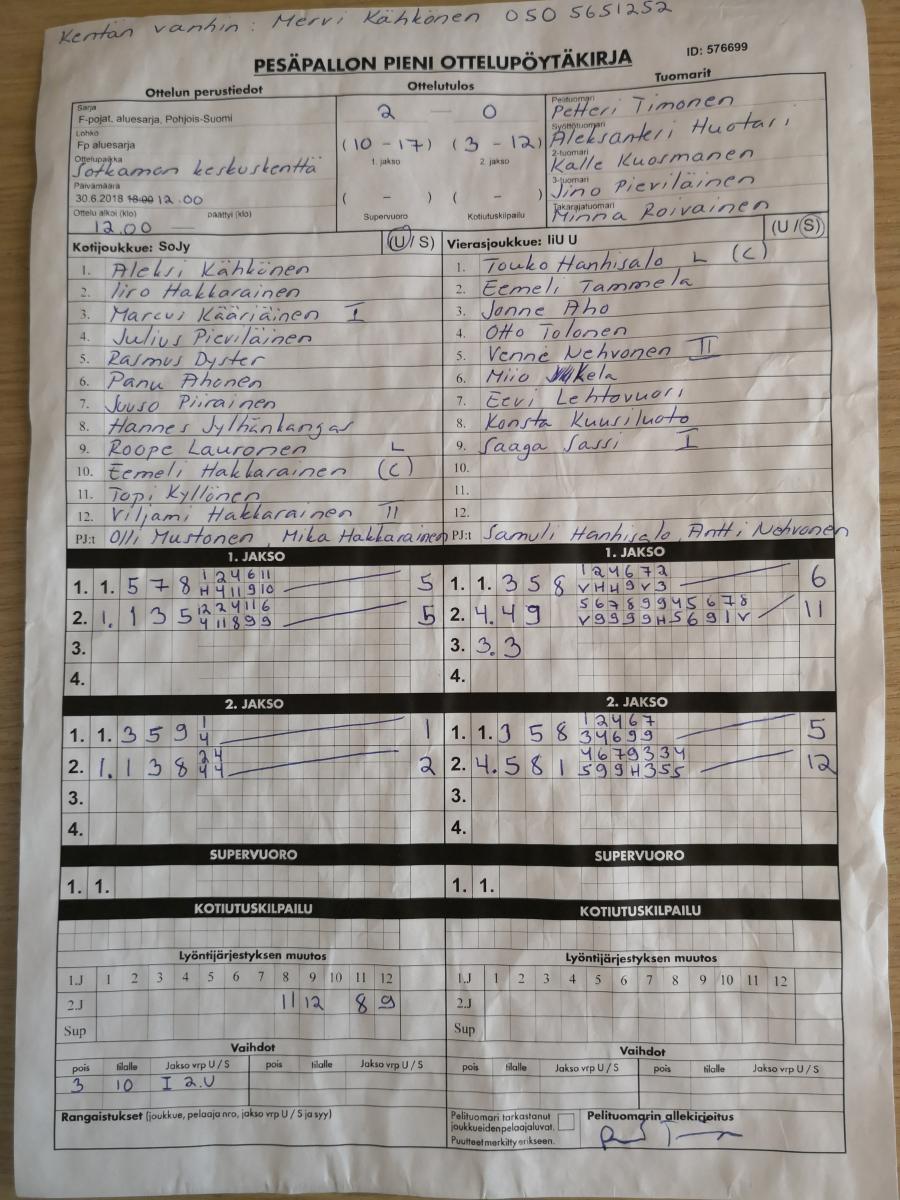 Kentän vanhin: Mervi Kähkönen 050 5651252
PESÄPALLON PIENI OTTELUPÖYTÄKIRJA ID: 576699
Ottelun perustiedot Ottelutulos Tuomarit
Sarja
F-pojat, aluesarja, Pohjois-Suomi
Lohko
Fp aluesarja
Ottelupaikka
Sotkamon keskuskenttä
Päivämäärä
30.6.2018 18:00 12.00
Ottelu alkoi (klo) päättyi (klo)
12.00 —
2 — 0
(10 - 17) (3 - 12)
1. jakso 2. jakso
( - ) ( - )
Supervuoro Kotiutuskilpailu
Pelituomari
Petteri Timonen
Syöttötuomari
Aleksanteri Huotari
2-tuomari
Kalle Kuosmanen
3-tuomari
Jino Pieviläinen
Takarajatuomari
Minna Roivainen
Kotijoukkue: SoJy (U / S)
1. Aleksi Kähkönen
2. Iiro Hakkarainen
3. Marcus Kääriäinen I
4. Julius Pieviläinen
5. Rasmus Dyster
6. Panu Ahonen
7. Juuso Piirainen
8. Hannes Jylhänkangas
9. Roope Lauronen L
10. Eemeli Hakkarainen (C)
11. Topi Kyllönen
12. Viljami Hakkarainen II
PJ:t Olli Mustonen, Mika Hakkarainen
Vierasjoukkue: IiU U (U / S)
1. Touko Hanhisalo L (C)
2. Eemeli Tammela
3. Jonne Aho
4. Otto Tolonen
5. Venne Nehvonen II
6. Miio kela
7. Eevi Lehtovuori
8. Konsta Kuusiluoto
9. Saaga Sassi I
10.
11.
12.
PJ:t Samuli Hanhisalo, Antti Nehvonen
1. JAKSO
1. 1. 5 7 8 1 2 4 6 11 5
H 4 11 9 10
2. 1. 1 3 5 12 2 4 11 6 5
4 11 8 9 9
3.
4.
1. JAKSO
1. 1. 3 5 8 1 2 4 6 7 2 6
V H 4 9 V 3
2. 4. 4 9 5 6 7 8 9 9 4 5 6 7 8 11
V 9 9 9 9 H 5 6 9 1 V
3. 3. 3
4.
2. JAKSO
1. 1. 3 5 9 1 1
4
2. 1. 1 3 8 2 4 2
4 4
3.
4.
2. JAKSO
1. 1. 3 5 8 1 2 4 6 7 5
3 4 6 9 9
2. 4. 5 8 1 4 6 7 9 3 3 4 12
5 9 9 H 3 5 5
3.
4.
SUPERVUORO SUPERVUORO
1. 1. 1. 1.
KOTIUTUSKILPAILU KOTIUTUSKILPAILU
Lyöntijärjestyksen muutos
1.J 1 2 3 4 5 6 7 8 9 10 11 12
2.J 11 12 8 9
Sup
Lyöntijärjestyksen muutos
1.J 1 2 3 4 5 6 7 8 9 10 11 12
2.J
Sup
Vaihdot Vaihdot
pois tilalle Jakso vrp U / S pois tilalle Jakso vrp U / S
3 10 I 2.U
pois tilalle Jakso vrp U / S pois tilalle Jakso vrp U / S
Rangaistukset (joukkue, pelaaja nro, jakso vrp U / S ja syy)
Pelituomari tarkastanut
joukkueiden pelaajaluvat.
Puutteet merkitty erikseen.
Pelituomarin allekirjoitus